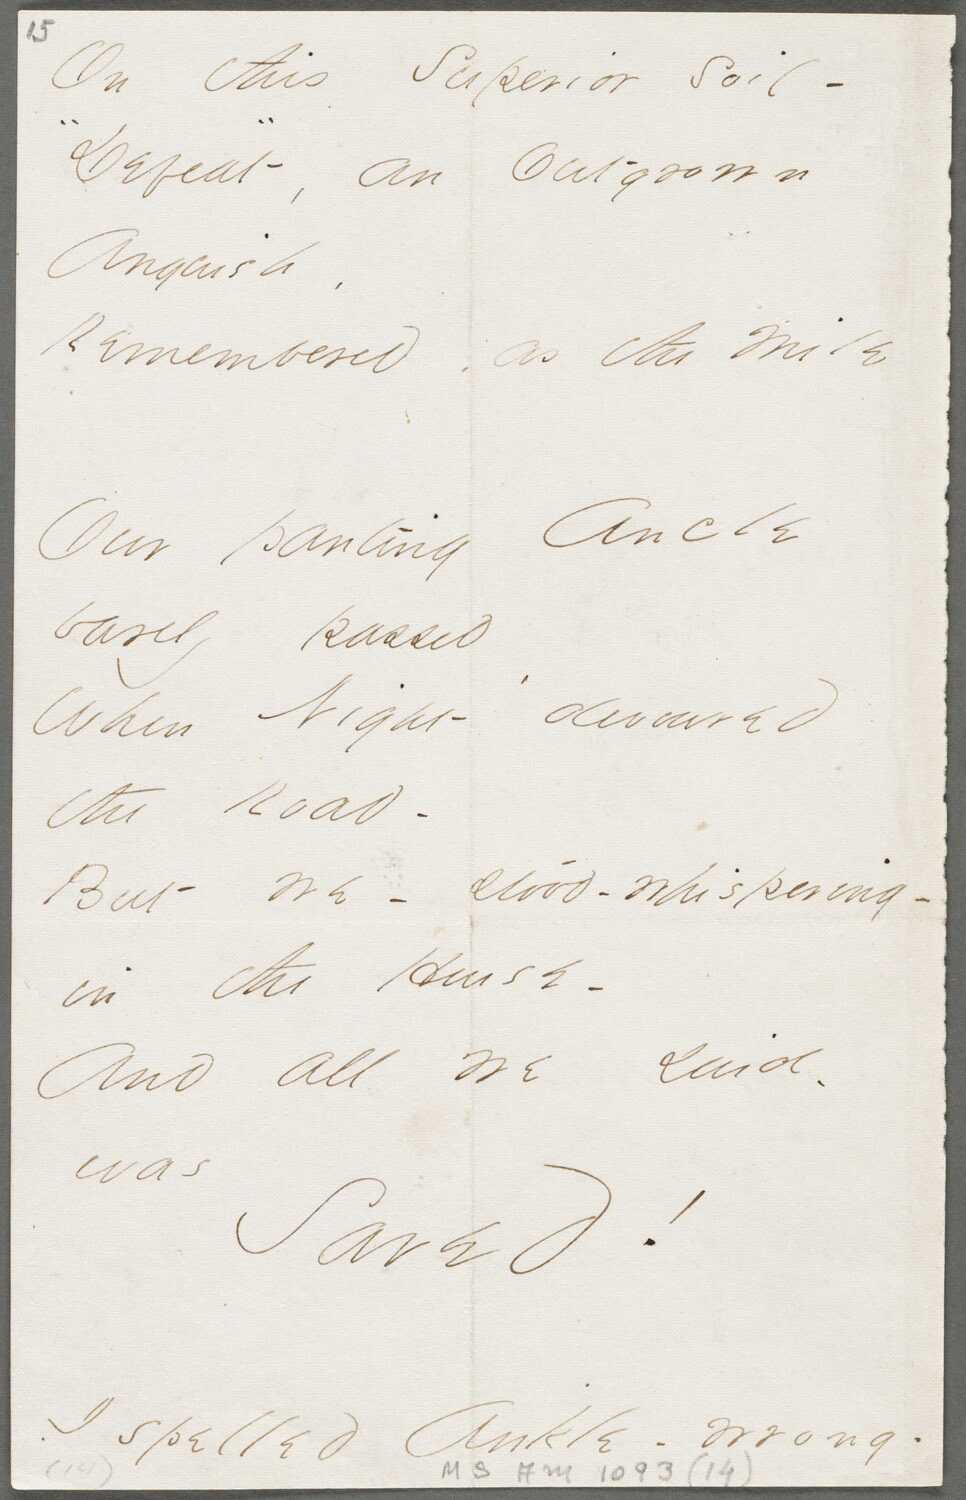 15
On this Superior Soil -
"Defeat", an Outgrown
Anguish,
Remembered, as the Mile

Our panting Ancle
barely passed,
When Night devoured
the Road -
But we - stood - whispering -
in the House -
And all we said,
was
Saved!

I spelled Ankle - wrong.
(14) MS Am 1093 (14)